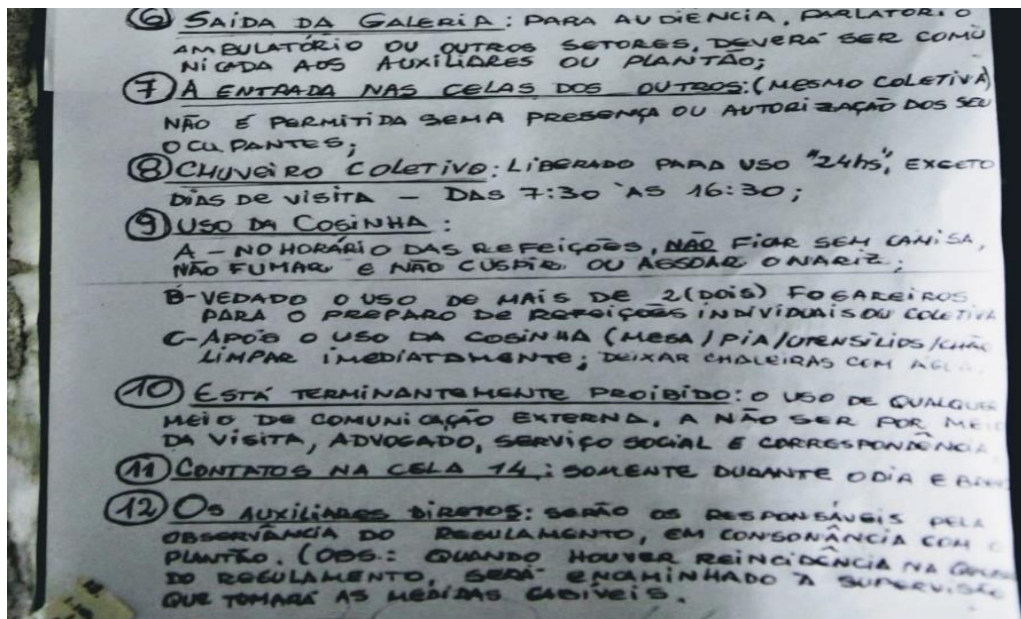 ⑥ SAÍDA DA GALERIA: PARA AUDIÊNCIA, PARLATÓRIO
AMBULATÓRIO OU OUTROS SETORES, DEVERÁ SER COMU
NICADA AOS AUXILIARES OU PLANTÃO;
⑦ A ENTRADA NAS CELAS DOS OUTROS: (MESMO COLETIVA)
NÃO É PERMITIDA SEM A PRESENÇA OU AUTORIZAÇÃO DOS SEU
OCUPANTES;
⑧ CHUVEIRO COLETIVO: LIBERADO PARA USO "24hs", EXCETO
DIAS DE VISITA — DAS 7:30 ÀS 16:30;
⑨ USO DA COSINHA:
A - NO HORÁRIO DAS REFEIÇÕES, NÃO FICAR SEM CAMISA,
NÃO FUMAR E NÃO CUSPIR OU ASSOAR O NARIZ;
B - VEDADO O USO DE MAIS DE 2 (DOIS) FOGAREIROS
PARA O PREPARO DE REFEIÇÕES INDIVIDUAIS OU COLETIVA
C - APÓS O USO DA COSINHA (MESA/PIA/UTENSÍLIOS/CHÃO
LIMPAR IMEDIATAMENTE; DEIXAR CHALEIRAS COM
⑩ ESTÁ TERMINANTEMENTE PROIBIDO: O USO DE QUALQUER
MEIO DE COMUNICAÇÃO EXTERNA, A NÃO SER POR MEIO
DA VISITA, ADVOGADO, SERVIÇO SOCIAL E CORRESPONDÊNCIA
⑪ CONTATOS NA CELA 14: SOMENTE DURANTE O DIA E
⑫ OS AUXILIARES DIRETOS: SERÃO OS RESPONSÁVEIS PELA
OBSERVÂNCIA DO REGULAMENTO, EM CONSONÂNCIA COM O
PLANTÃO. (OBS.: QUANDO HOUVER REINCIDÊNCIA NA
DO REGULAMENTO, SERÁ ENCAMINHADO À SUPERVISÃO
QUE TOMARÁ AS MEDIDAS CABÍVEIS.